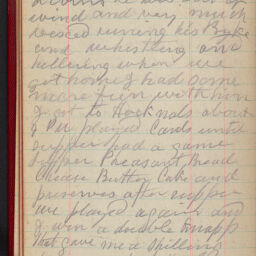 wind and very much
vexed running his Brake
and whistling and
hollering when we
got home I had some
more fun with him
I got to Hocknals about
2 P.M. played Cards until
supper had a game
supper Pheasant, Bread
Cheese Butter Cake and
preserves after supper
we played again and
I win a double Knapp
that gave me a shilling